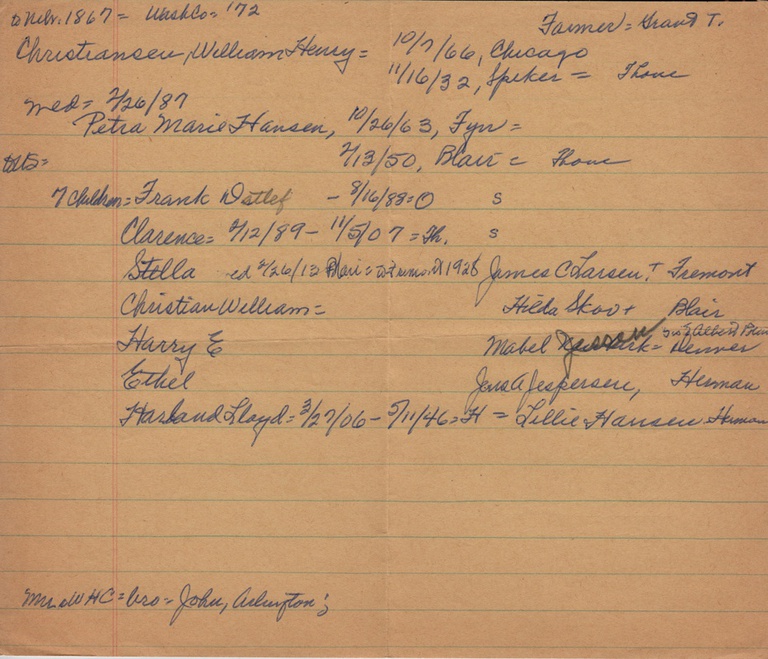 to Nebr. 1867 = WashCo = '72 Farmer = Grant T.
Christiansen, William Henry = 10/7/66, Chicago
11/16/32, Spiker = Thone
med = 2/26/87
Petra Marie Hansen, 10/26/63, Fyn =
2/13/50, Blair = Thone
7 Children = Frank Detlef - 8/16/88 = O s
Clarence = 2/12/89 - 11/5/07 = Th. s
Stella ed 2/26/13 Blair = 1928 James C Larsen, + Fremont
Christian William = Hilda Skov + Blair
Harry E Mabel Jessen = Denver
Ethel Jens A Jespersen, Herman
Harland Lloyd = 3/27/06 - 5/11/46 = H = Lillie Hansen Herman
Mr. WHC = bro = John, Arlington;